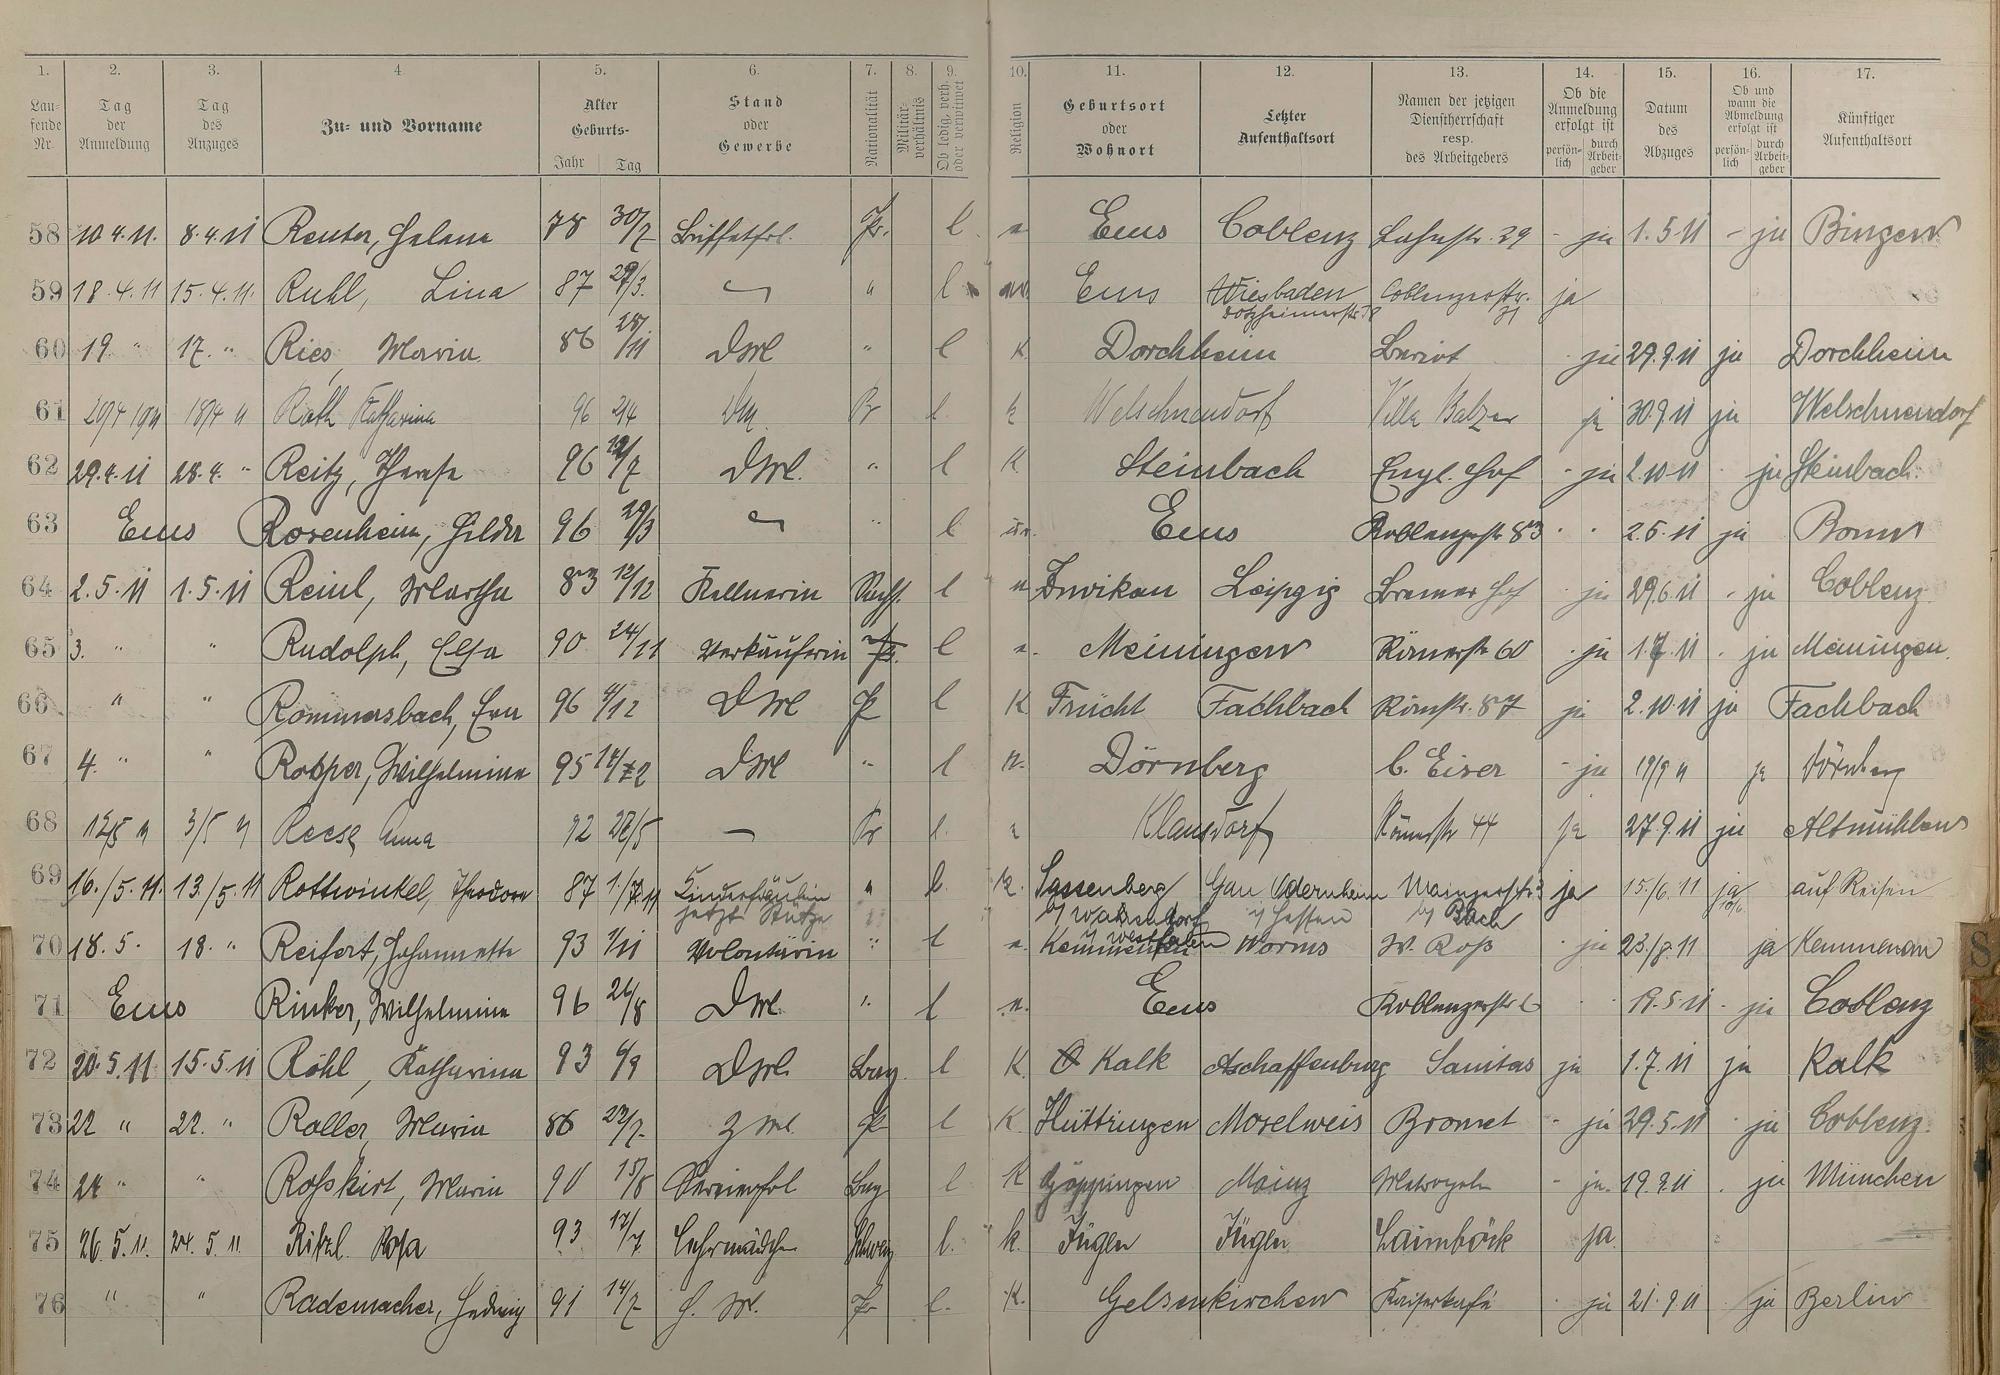 1. 2. 3. 4 5. 6. 7. 8. 9. 10. 11. 12. 13. 14. 15. 16. 17.
Laufende Nr. Tag der Anmeldung Tag des Anzuges Zu- und Vorname Alter Geburts- Jahr Tag Stand oder Gewerbe Nationalität Militärverhältnis Ob ledig, verh. oder verwitwet Religion Geburtsort oder Wohnort Letzter Aufenthaltsort Namen der jetzigen Dienstherrschaft resp. des Arbeitgebers Ob die Anmeldung erfolgt ist persönlich durch Arbeitgeber Datum des Abzuges Ob und wann die Abmeldung erfolgt ist persönlich durch Arbeitgeber Künftiger Aufenthaltsort
58 10.4.11. 8.4.11 Reuter, Helene 78 30/7 Büffetfrl. Pr. l Ems Coblenz Lahnstr. 29 - ja 1.5.11 - ja Bingen
59 18.4.11 15.4.11. Ruhl, Lina 87 29/3. " l ev. Ems Wiesbaden Dotzheimerstr. Coblenzerstr. 31 ja
60 19 " 17. " Ries, Maria 86 28/11 DM " l K Dorchheim ja 29.9.11 ja Dorchheim
61 20/4 1911 18/4 11 Roth Katharina 96 2/4 DM. Pr l. k Welschneudorf Villa Balzer ja 30.9.11 ja Welschneudorf
62 29.4.11 28.4. " Reitz, Therese 96 DM. " l K Steinbach Engl. Hof - ja 2.10.11 ja Steinbach.
63 Ems Rosenheim, Hilda 96 29/3 " l isr. Ems Koblenzerstr 83 2.5.11 ja Bonn
64 2.5.11 1.5.11 Reinl, Martha 83 12/12 Kellnerin Sachs. l Zwickau Leipzig Bremer Hof ja 29.6.11 - ja Coblenz
65 3. " " Rudolph, Elsa 90 24/11 Verkäuferin l Meiningen Römerstr 60 ja 1.7.11 ja Meiningen
66 " " Rommersbach, Eva 96 4/12 DM Pr l K Frücht Fachbach Römerstr. 87 ja 2.10.11 ja Fachbach
67 4. " " Rosper, Wilhelmine 95 DM " l Dörnberg C. Eiser - ja 19/9 11 ja Dörnberg
68 12/5 11 3/5 11 Reese Anna 92 — Pr l. Klausdorf Römerstr 44 ja 27.9.11 ja Altmühlen
69 16./5.11. 13./5.11 Rottwinkel, Theodore 87 Kinderfräulein jetzt Stütze " l. k. Sassenberg b/ Warendorf i/ Westfalen Gau Odernheim i/ Hessen Mainzerstr. b/ Bach ja 15./6.11 ja auf Reisen
70 18.5. 18. " Reifert, Johannette 93 1/11 Volontärin " l Kemmenau Worms W. Roß ja 23./8.11 ja Kemmenau
71 Ems Rinker, Wilhelmine 96 26/8 DM. " l Ems Koblenzerstr 19.5.11 - ja Coblenz
72 20.5.11 15.5.11 Röhl, Katharina 93 DM. Bay. l K. Kalk Aschaffenburg Sanitas ja 1.7.11 ja Kalk
73 22 " 22. " Roller, Maria 86 23/7. Z M. Pr l K. Hüttringen Moselweis Bromet - ja 29.5.11 ja Coblenz.
74 24 " " Roßkirt, Maria 90 15/8 Servierfrl Bay l K Göppingen Mainz Metropole - ja. 19.9.11 ja München
75 26.5.11. 24.5.11. Ritzl Rosa 93 17/7 Lehrmädchen Schweiz l. k. Fügen Fügen Laimböck ja
76 " " Rademacher, Hedwig 91 14/7 H. M. Pr l. K. Gelsenkirchen Kaiserkafé ja 21.9.11 ja Berlin